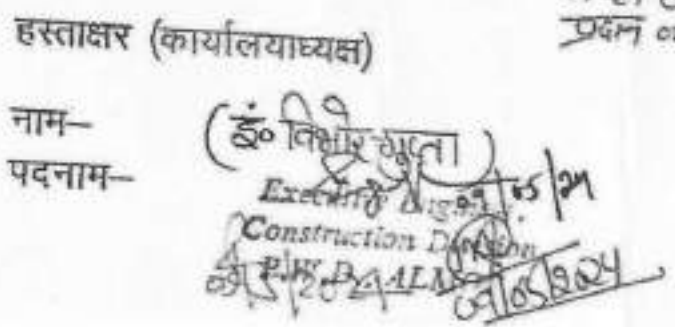 प्रदान
हस्ताक्षर (कार्यालयाध्यक्ष)
नाम–
(इं० विभोर गुप्ता)
पदनाम–
Executive Engineer
09/05/24
Construction Division
P.W.D. ALM
09/05/2024